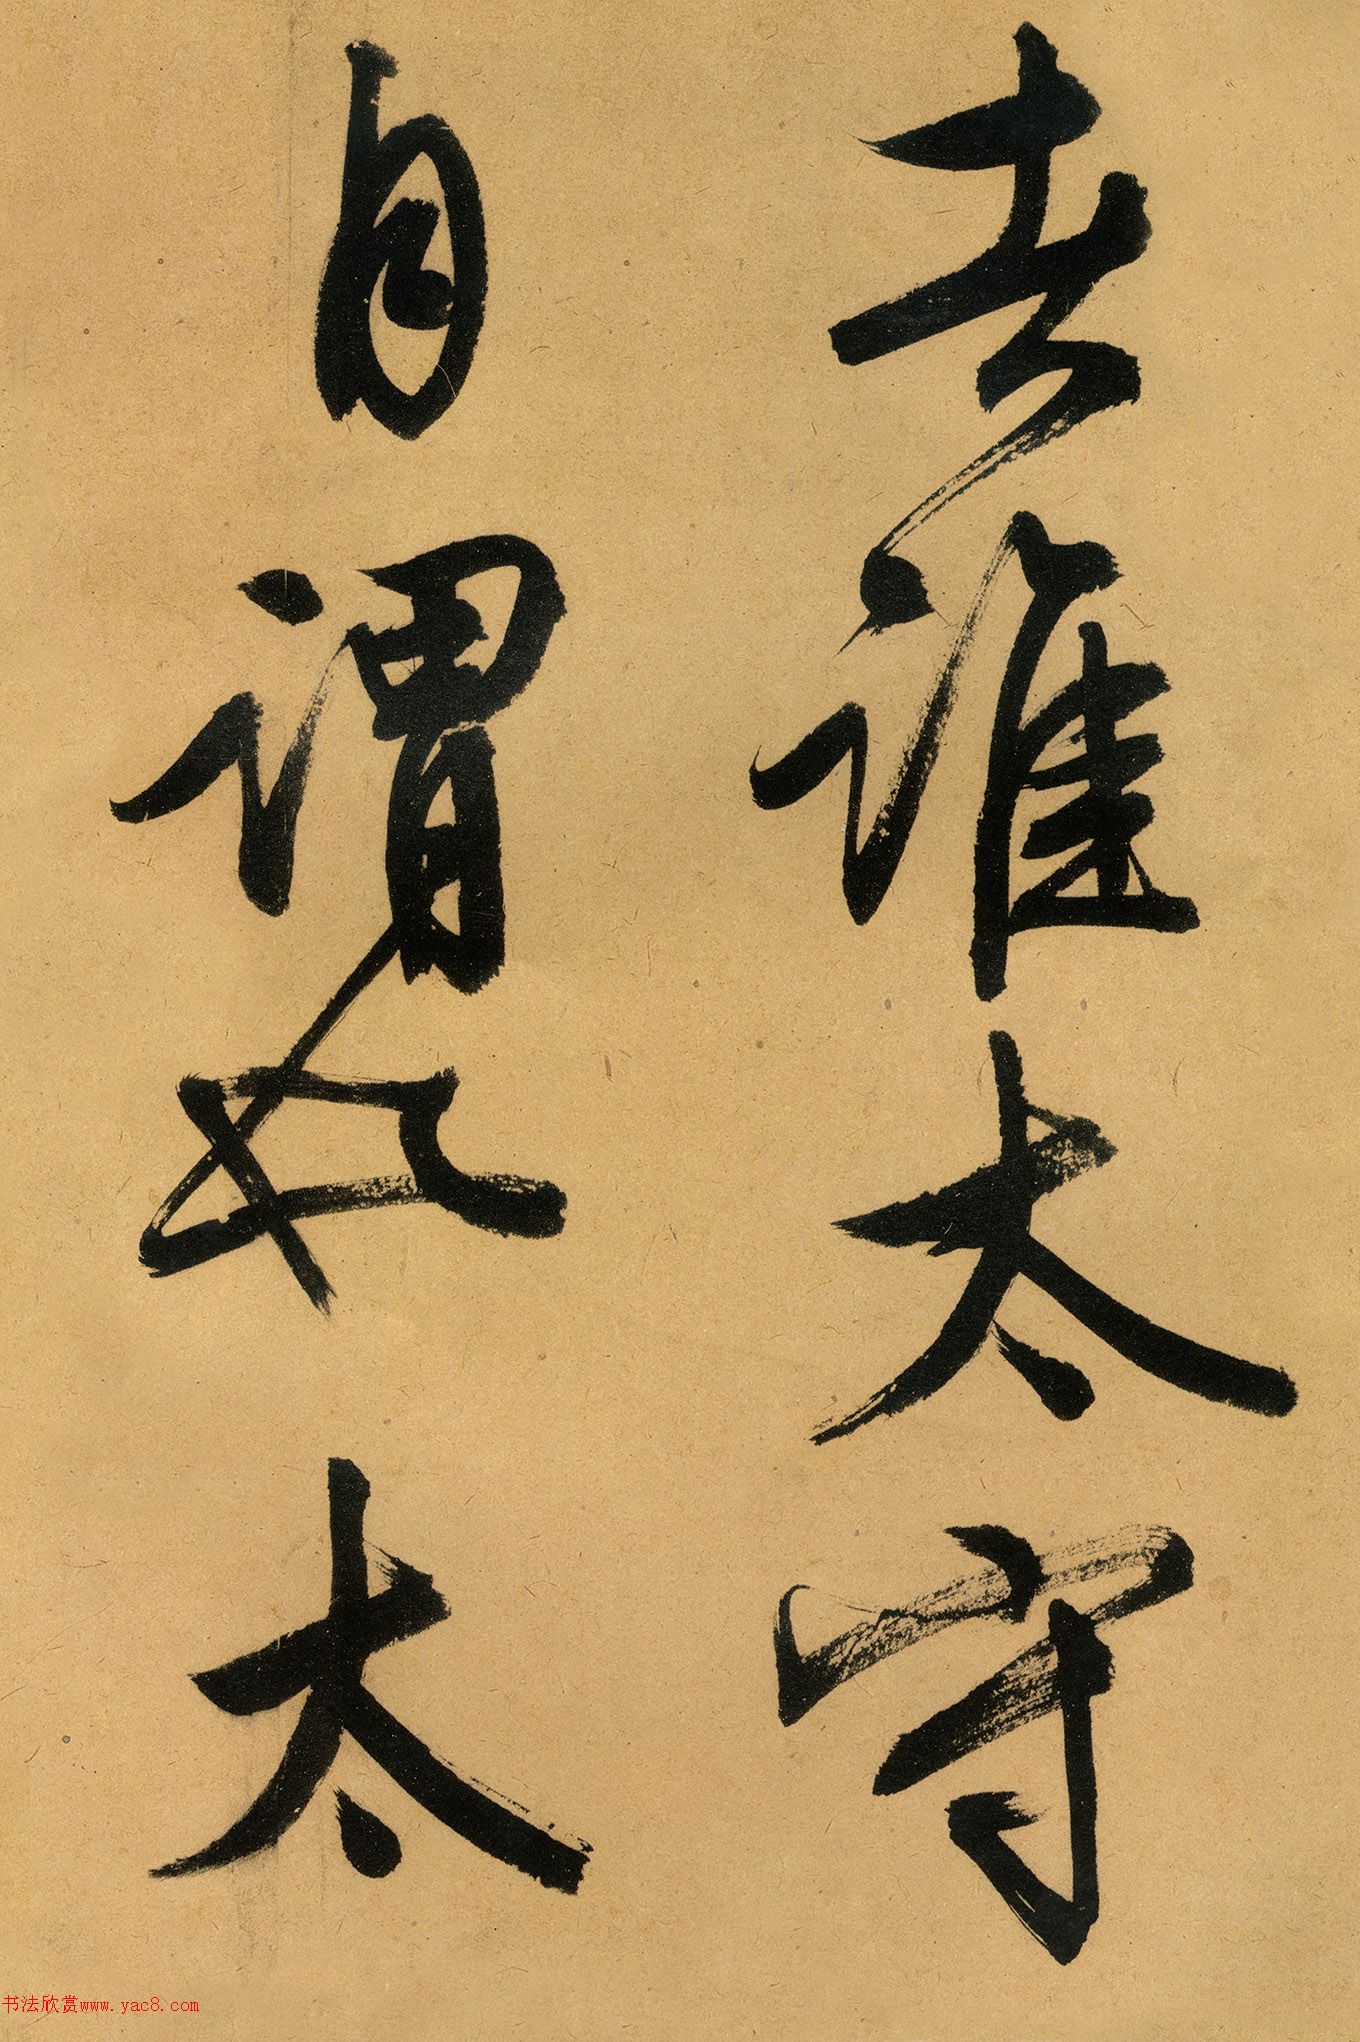 者誰太守
自謂也太
书法欣赏www.yac8.com